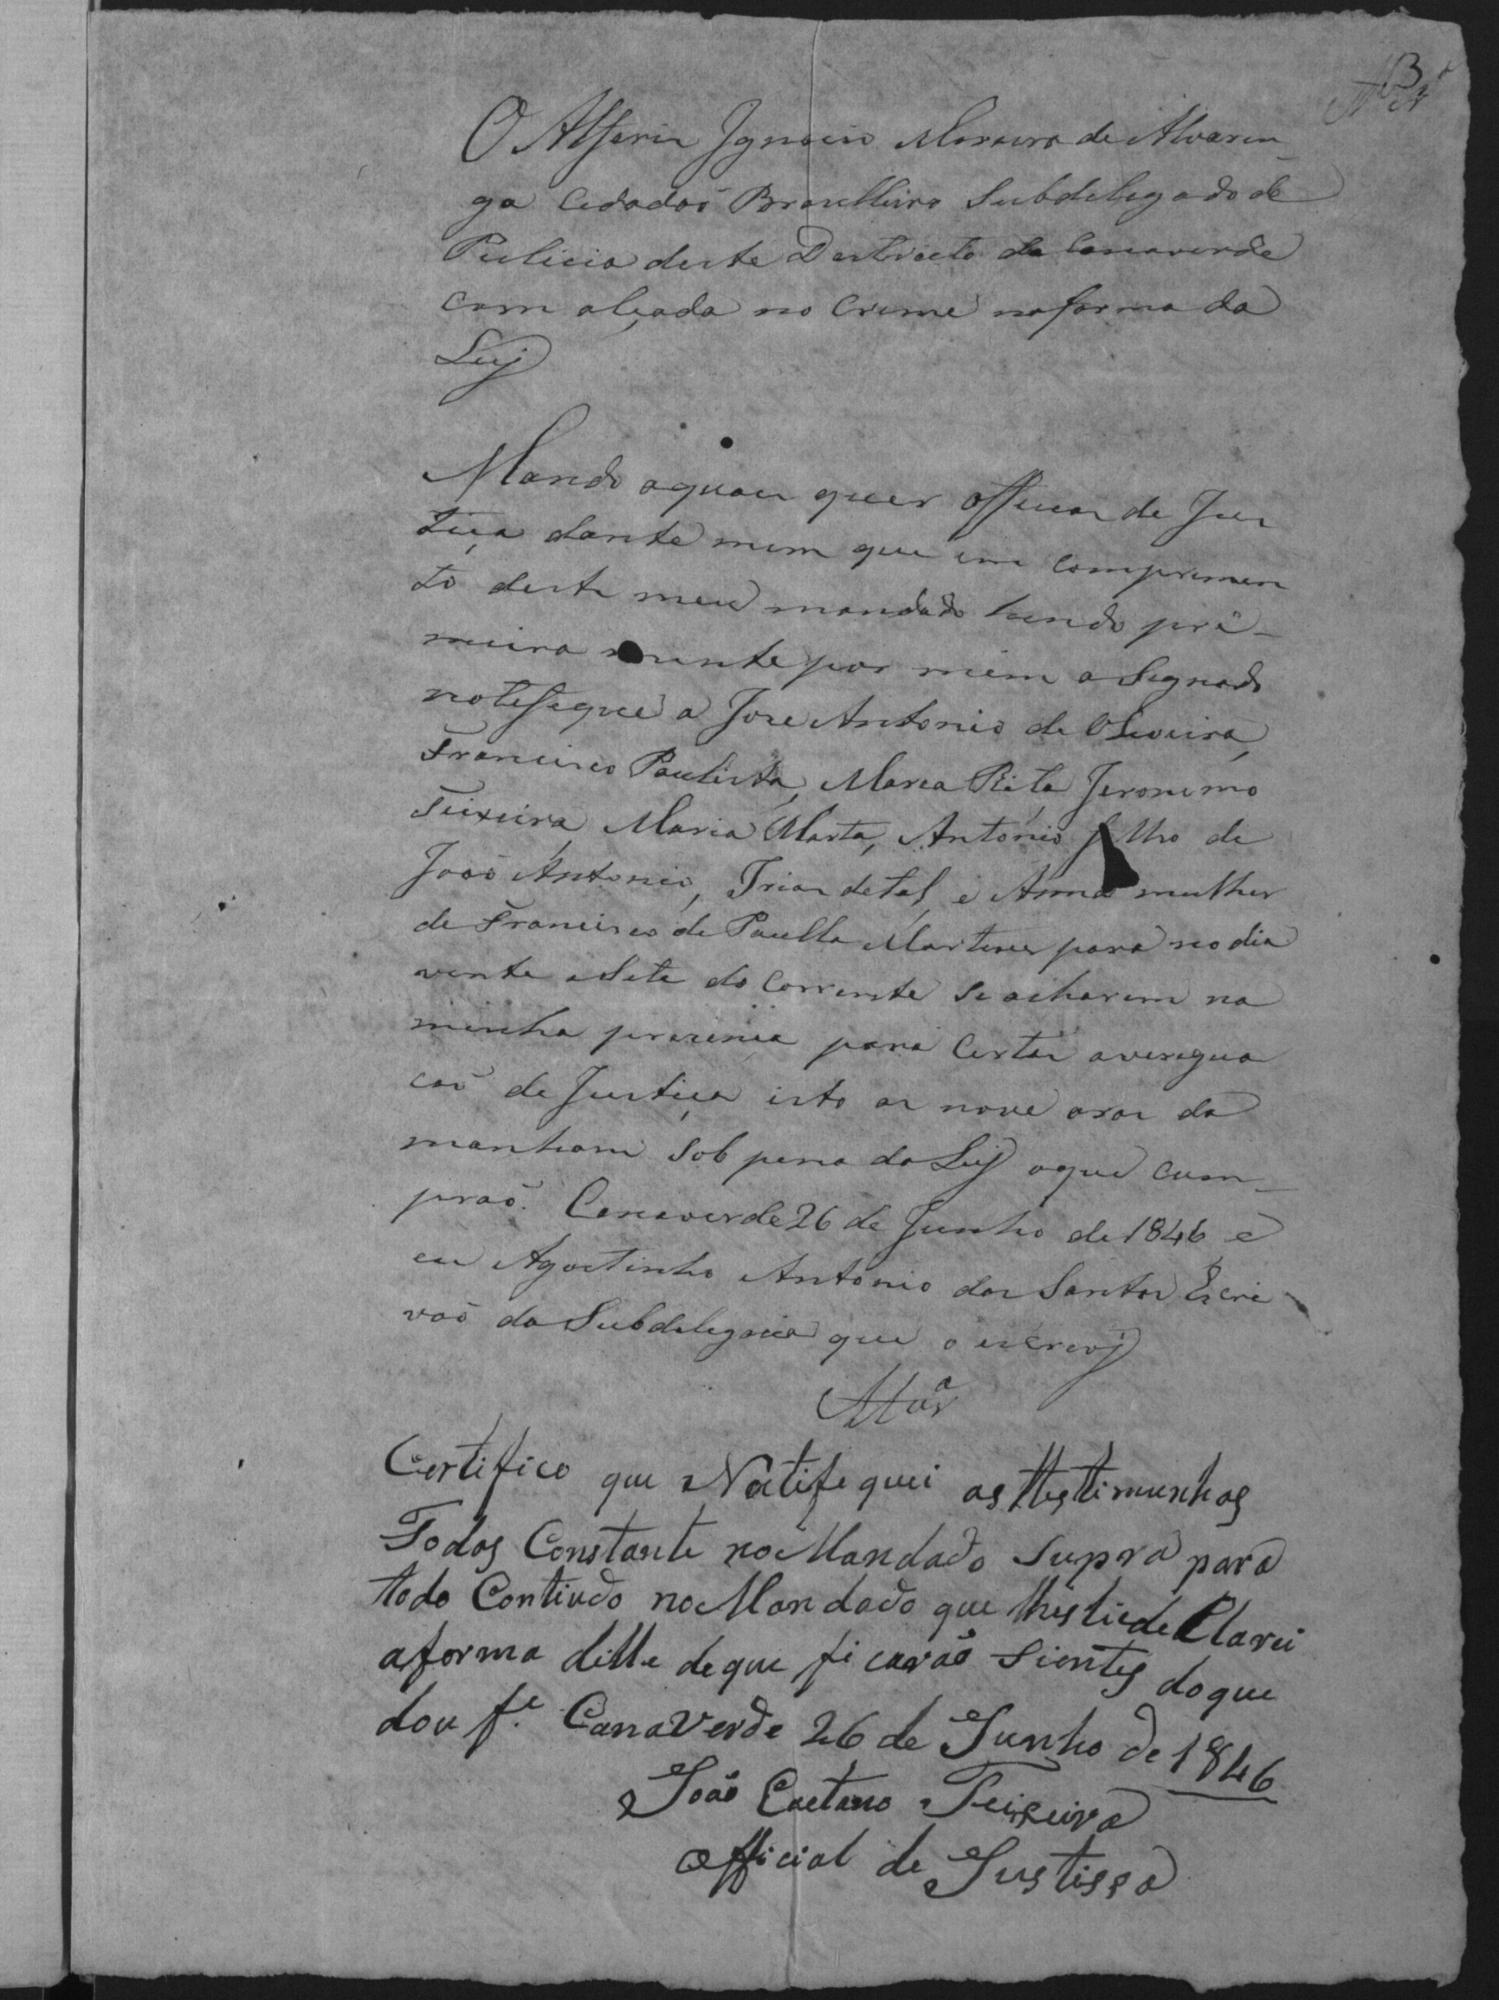 O Alferes Ignacio Moreira de Alvaren
ga Cidadaõ Brazilleiro Subdelegado de
Pulicia deste Destricto da Canaverde
com alçada no Crime na forma da
Leij
Mando aquau quer Officiar de Jus
tiça dante mim que em comprimen
to deste meu mandado hindo pri-
meira mente por mim a Signado
notefique a Jose Antonio de Oliveira,
Francisco Paulista, Maria Rita Jeronimo
Teixeira, Maria Marta, Antonio filho de
Joaõ Antonio, Irias de tal, e Anna mulher
de Francisco de Paulla Martins para no dia
vinte e Sete do Corrente se acharem na
minha prezença para Certas averigua
caõ de Justiça isto as nove oras da
manham sob pena da Leij o que cum-
praõ. Canaverde 26 de Junho de 1846 e
eu Agostinho Antonio dos Santos Escri
vaõ da Subdelegacia que o escrevj
Certifico que Notifequei as ttestimunhas
Todas Constante no Mandado Supra para
todo Contiudo no Mandado que lhes lie de Clarei
a forma delle de que ficaraõ Sientes do que
dou fe. CanaVerde 26 de Junho de 1846
Joaõ Caetano Teixeira
Official de Justissa